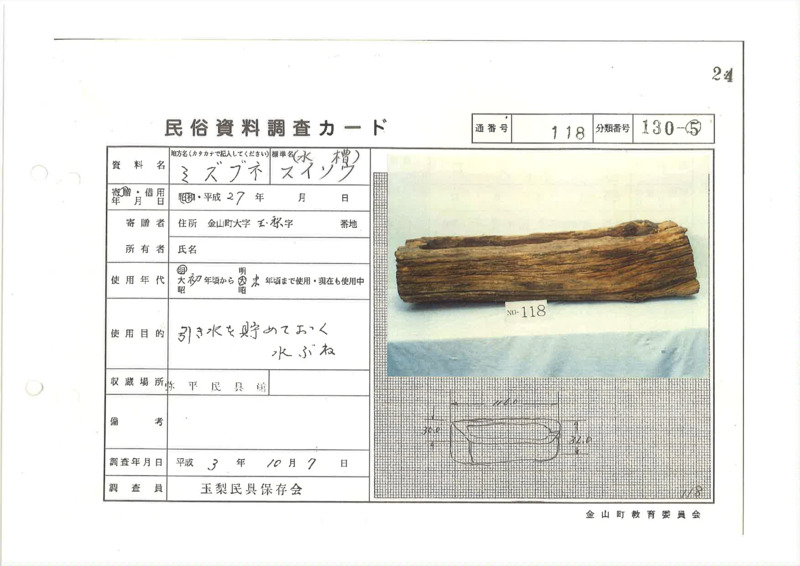 24
民俗資料調査カード
通番号 118 分類番号 130-⑤
資料名 地方名(カタカナで記入してください) ミズブネ 標準名(水槽) スイソウ
寄贈・借用年月日 昭和・平成 27年 月 日
寄贈者 住所 金山町大字玉梨字 番地
所有者 氏名
使用年代 明大昭 初年頃から 明大昭 末年頃まで使用・現在も使用中
使用目的 引き水を貯めておく
水ぶね
収蔵場所 弥平民具館
備考
調査年月日 平成 3年 10月 7日
調査員 玉梨民具保存会
NO.118
116.0
30.0
32.0
118
金山町教育委員会